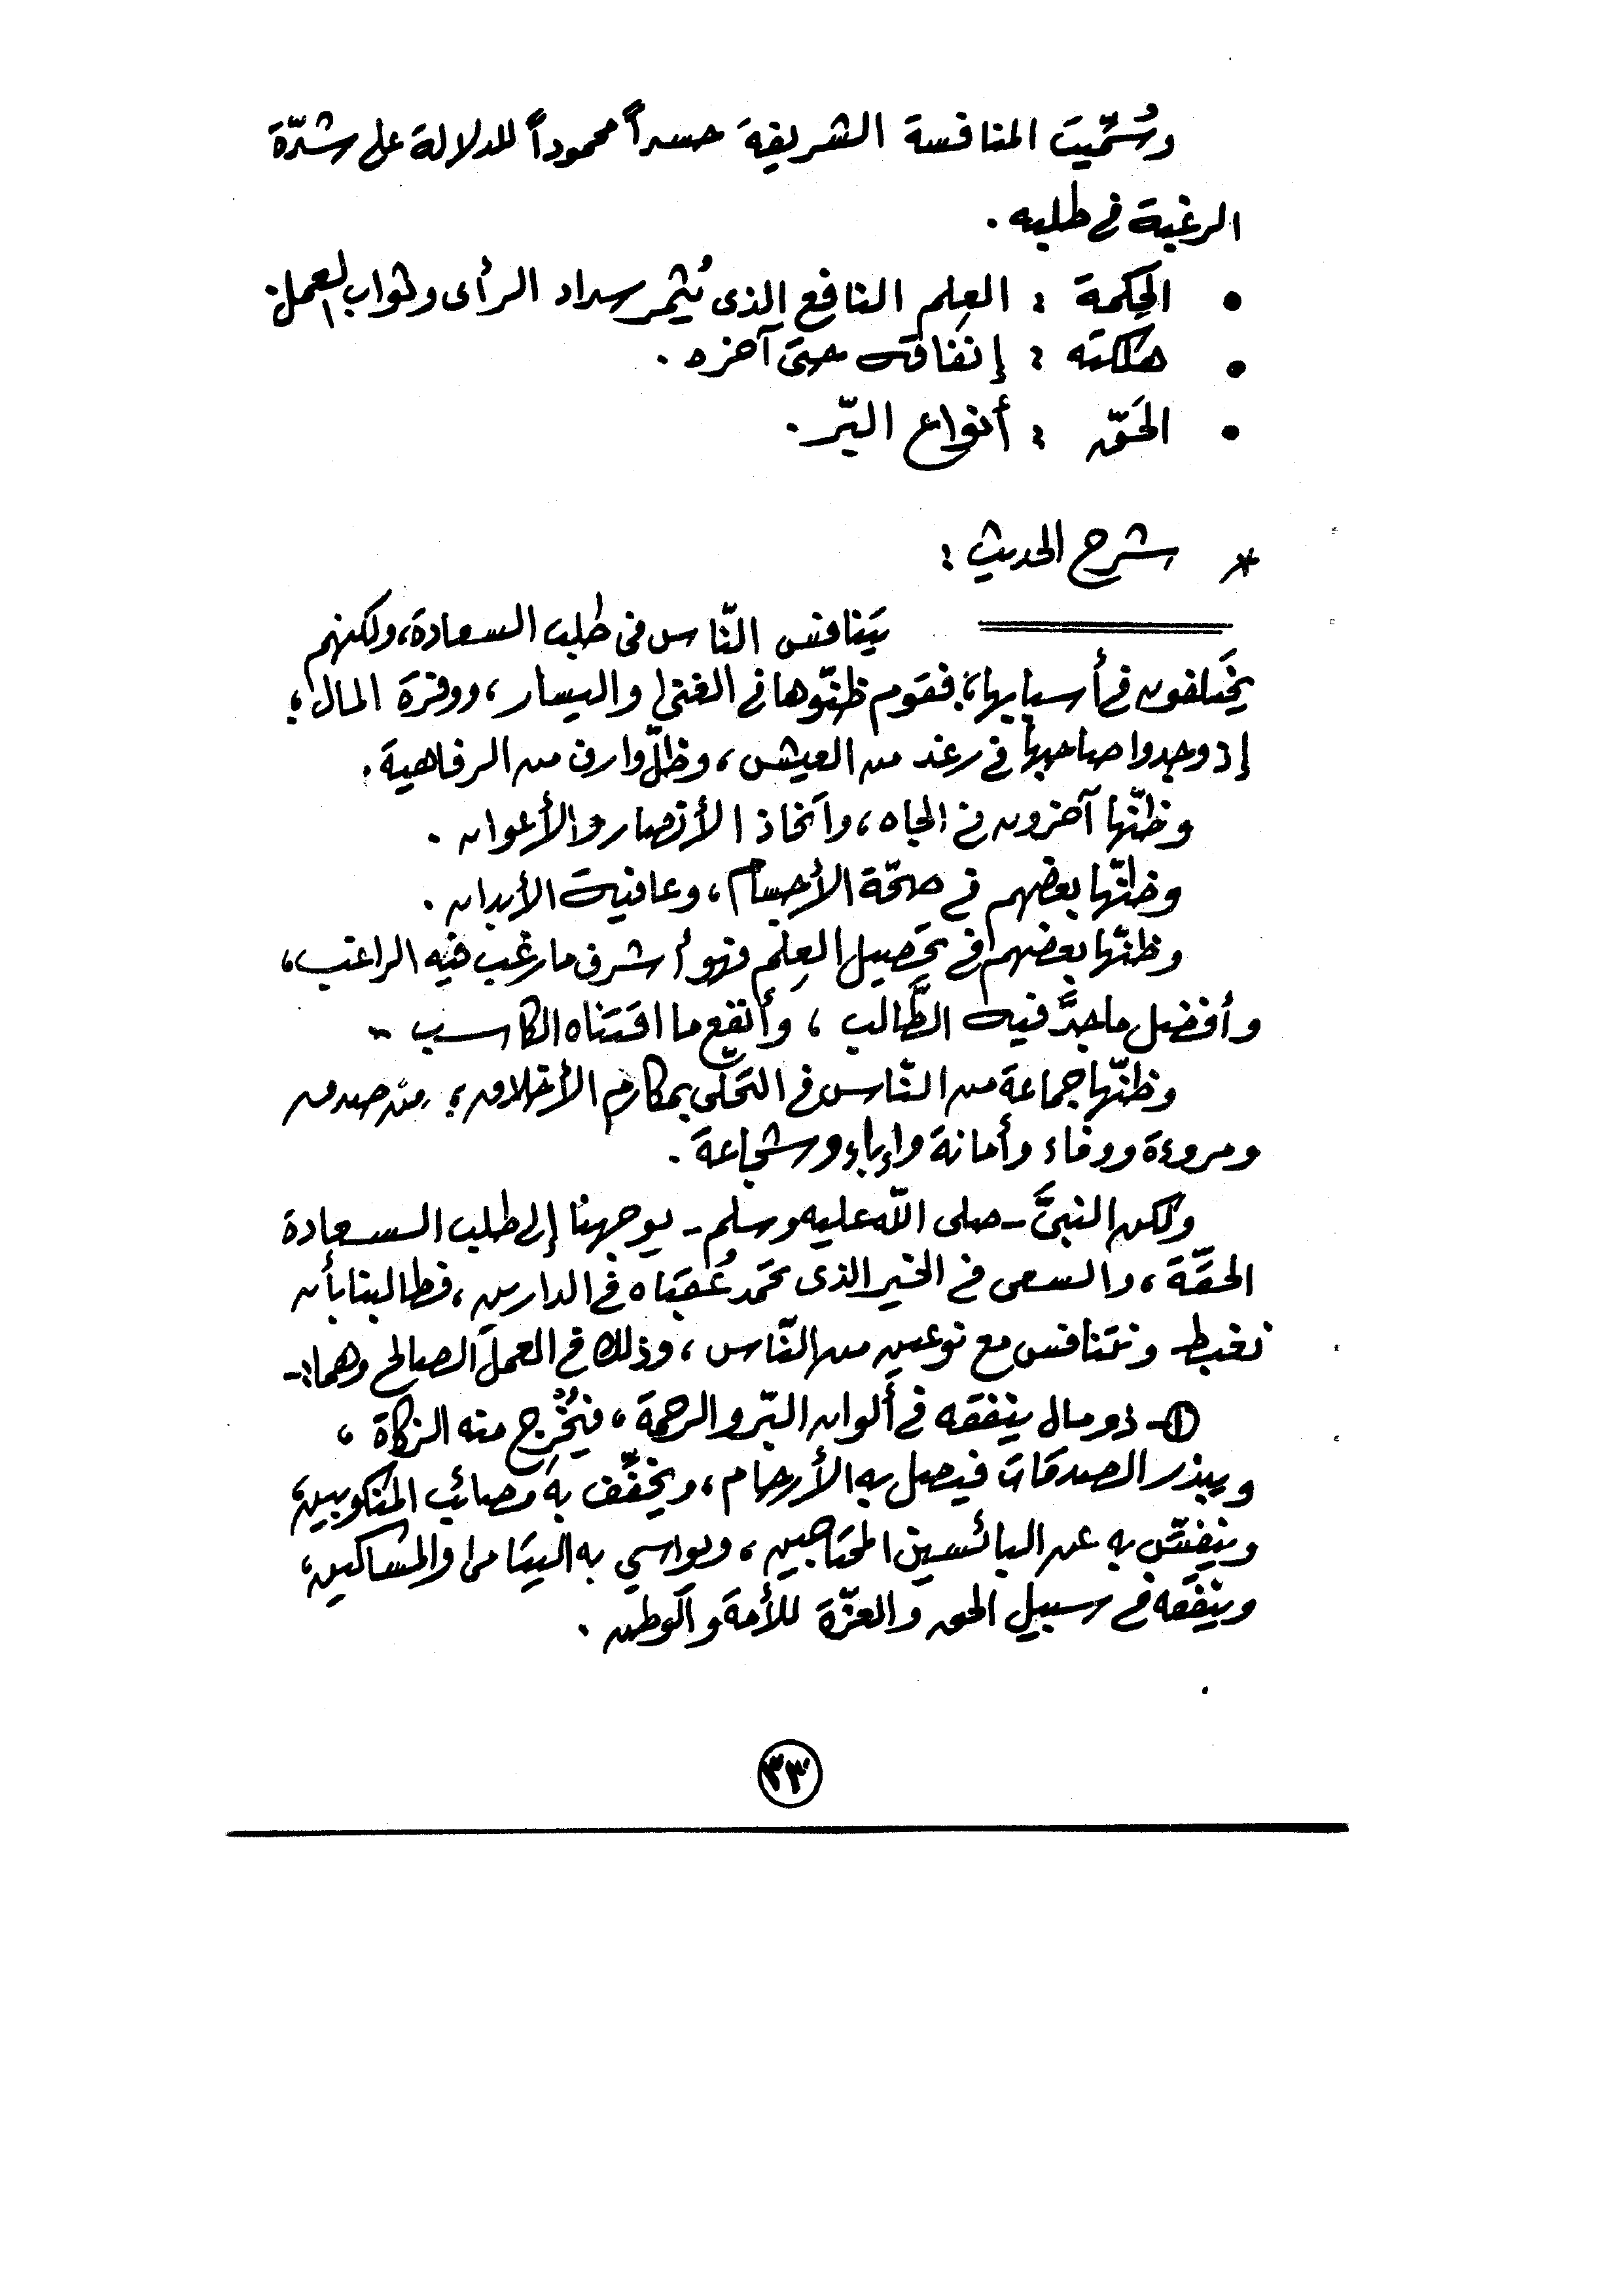 وسُمِّيت المنافسة الشريفة حسداً محموداً للدلالة على شدّة
الرغبة فى طلبه .
• الحِكمة : العِلم النافع الذى يُثمر سداد الرأى وثواب العمل .
• هلكته : إنفاقه حتى آخره .
• الحَقّ : أنواع البّر .
* شرح الحديث :
يَتنافس النّاس فى طلب السعادة، ولكنهم
يختلفون فى أسبابها، فقوم ظنّوها فى الغنى واليسار، ووفرة المال؛
إذ وجدوا صاحبها فى رغد من العيش، وظلّ وارف من الرفاهية .
وظنّها آخرون فى الجاه، واتخاذ الأنصار والأعوان .
وظنّها بعضهم فى صحّة الأجسام، وعافية الأبدان .
وظنّها بعضهم فى تحصيل العِلم فهو أشرف ما رغب فيه الراغب،
وأفضل ما جدَّ فيه الطَّالب، وأنفع ما اقتناه الكاسب -
وظنّها جماعة من النّاس فى التحلّى بمكارم الأخلاق؛ من صدق
ومروءة ووفاء وأمانة وإباء وشجاعة .
ولكن النبىَّ - صلى اللّه عليه وسلم - يوجهنا إلى طلب السعادة
الحقّة، والسعى فى الخير الذى تحمَد عُقباه فى الدارين، فطالبنا بأن
نغبط - ونتنافس مع نوعين من النّاس، وذلك فى العمل الصالح وهما :-
①- ذو مال ينفقه فى ألوان البّر والرحمة، فيُخْرِج منه الزكاة،
ويبذر الصدقات فيصل به الأرحام، ويخفِّف به مصائب المنكوبين،
وينفّس به عن البائسين المحتاجين، ويواسي به اليتامى والمساكين،
وينفقه فى سبيل الحق والعزّة للأمة والوطن .
٣٣